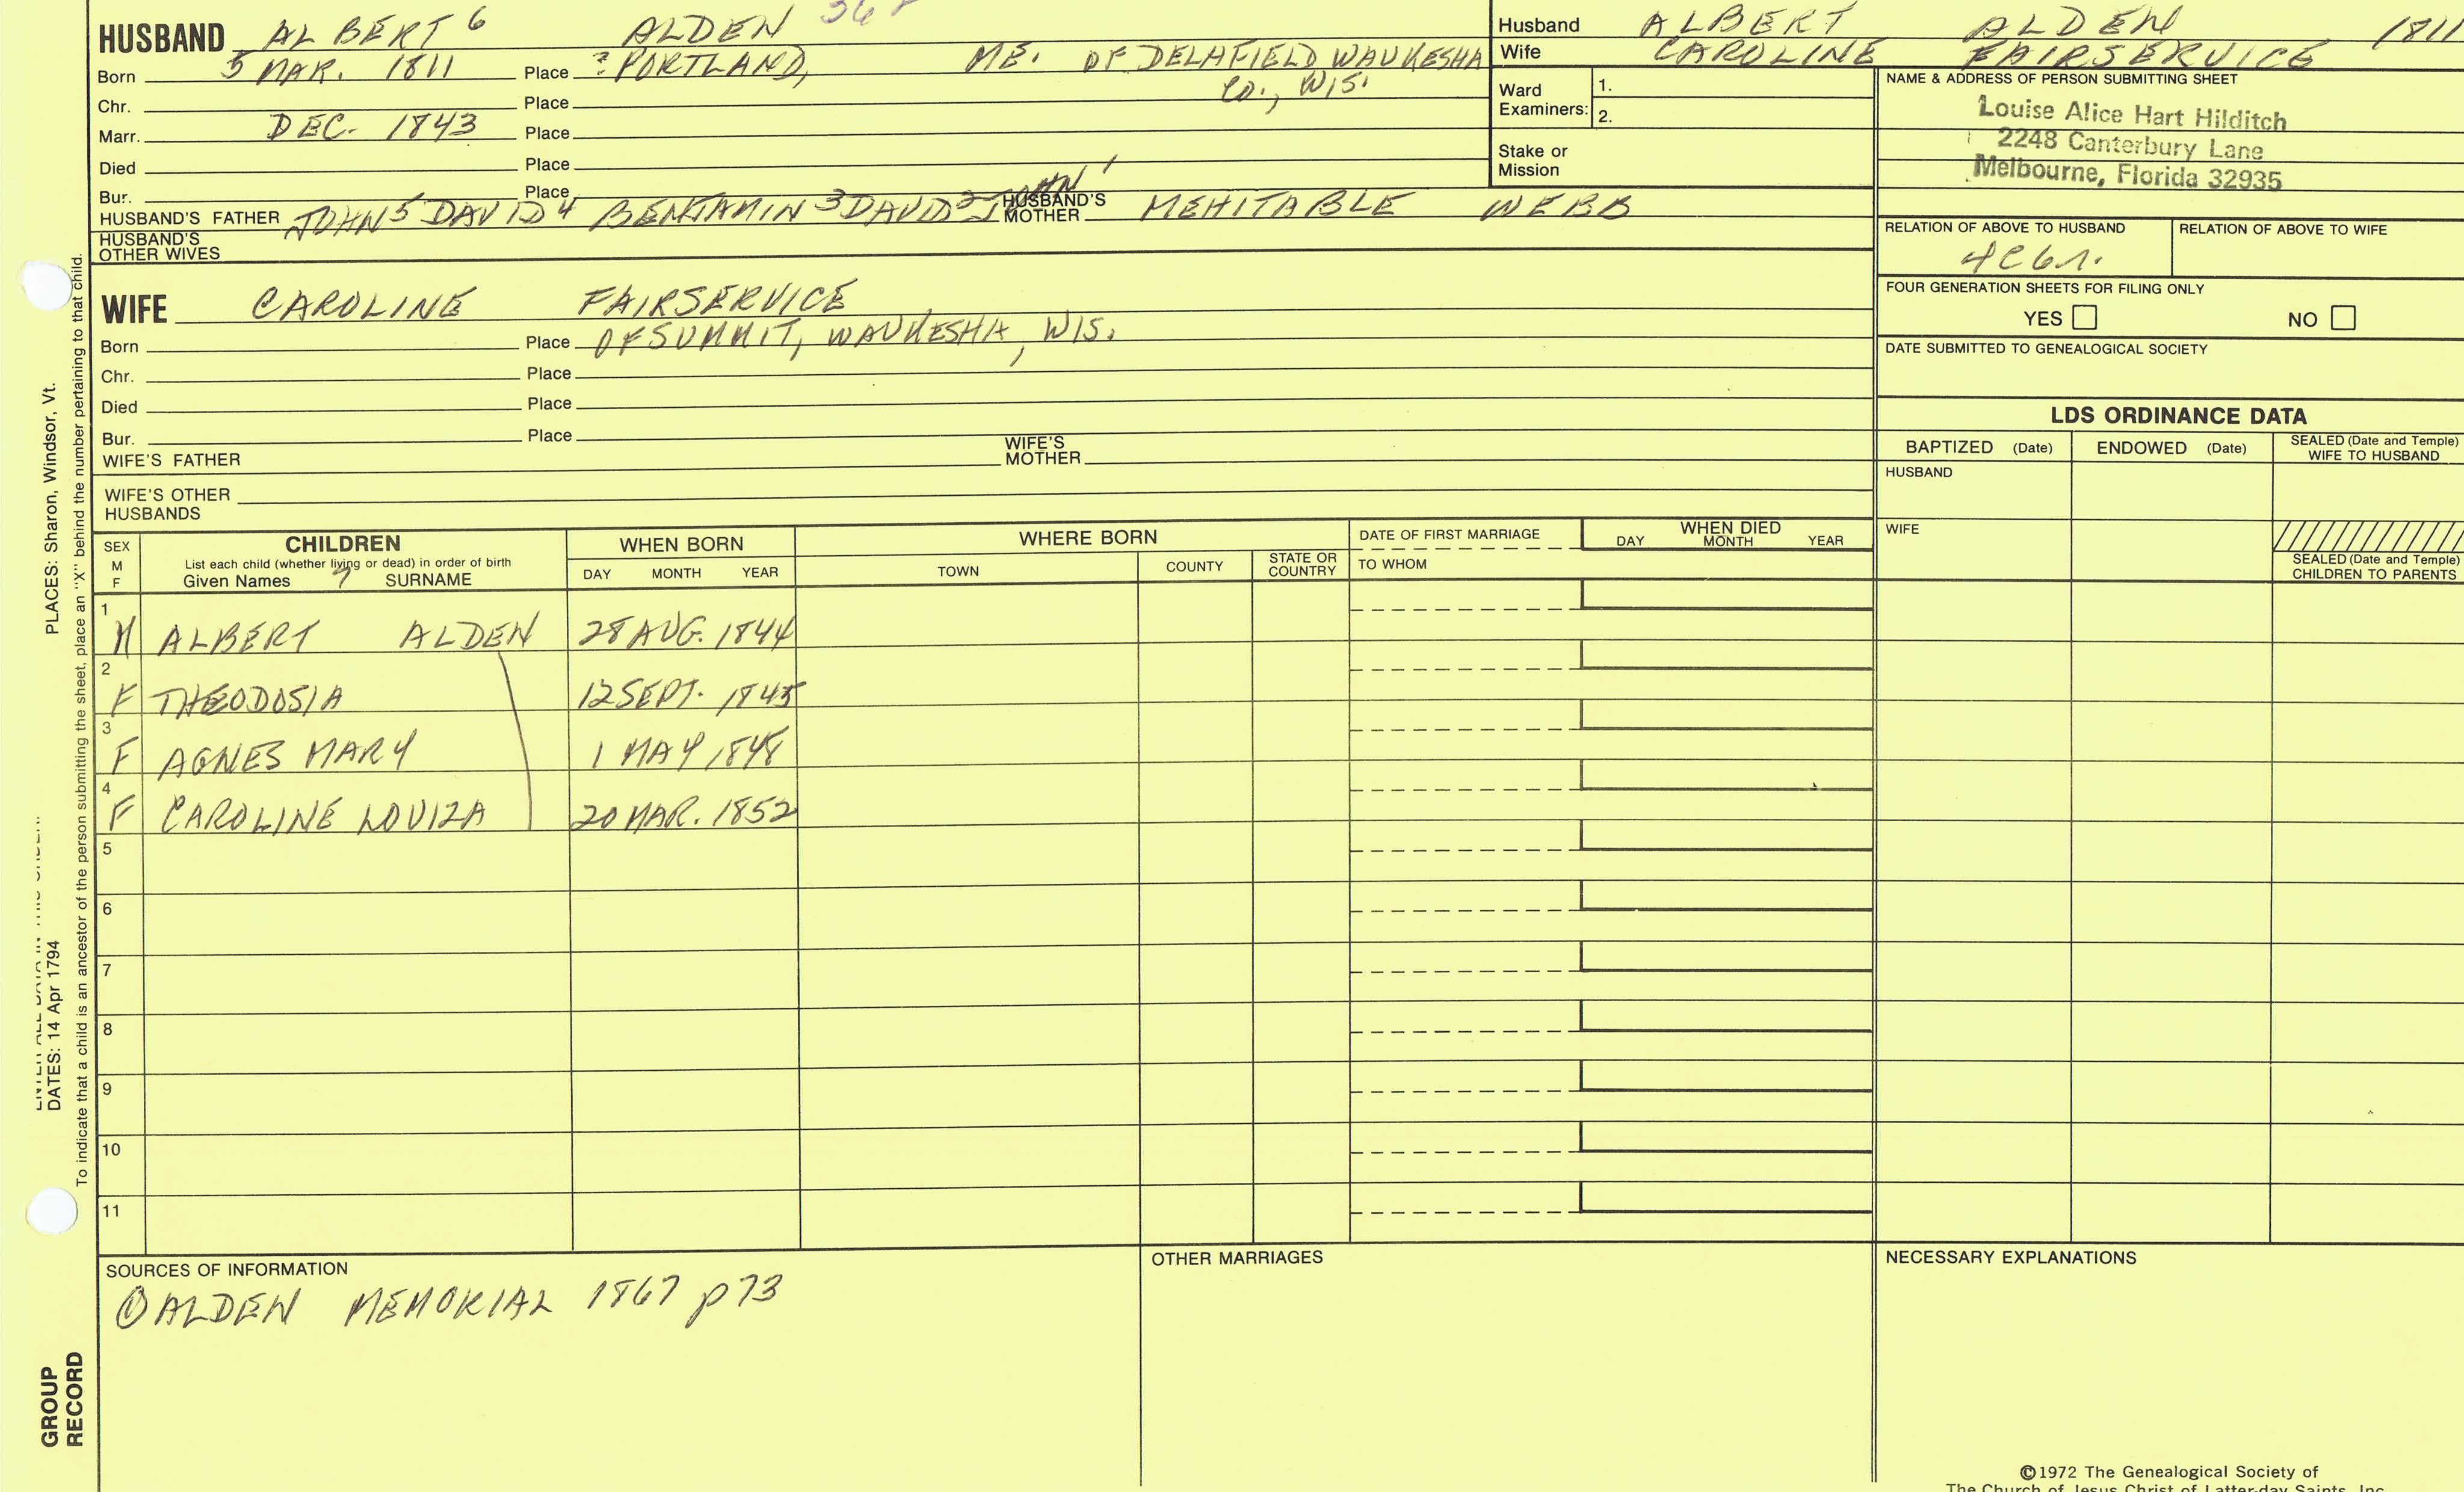 HUSBAND ALBERT 6 ALDEN
Born 5 MAR. 1811 Place ? PORTLAND, ME. OF DELAFIELD WAUKESHA
CO., WIS.
Chr. Place
Marr. DEC. 1843 Place
Died Place
Bur. Place
HUSBAND'S FATHER JOHN 5 DAVID 4 BENJAMIN 3 DAVID 2 JOHN 1 HUSBAND'S MOTHER MEHITABLE WEBB
HUSBAND'S OTHER WIVES
Husband ALBERT ALDEN 1811
Wife CAROLINE FAIRSERVICE
Ward Examiners: 1.
2.
Stake or Mission
NAME & ADDRESS OF PERSON SUBMITTING SHEET
Louise Alice Hart Hilditch
2248 Canterbury Lane
Melbourne, Florida 32935
RELATION OF ABOVE TO HUSBAND RELATION OF ABOVE TO WIFE
4C6r.
FOUR GENERATION SHEETS FOR FILING ONLY
YES NO
DATE SUBMITTED TO GENEALOGICAL SOCIETY
WIFE CAROLINE FAIRSERVICE
Born Place OF SUMMIT, WAUKESHA, WIS.
Chr. Place
Died Place
Bur. Place
WIFE'S FATHER WIFE'S MOTHER
WIFE'S OTHER HUSBANDS
LDS ORDINANCE DATA
BAPTIZED (Date) ENDOWED (Date) SEALED (Date and Temple) WIFE TO HUSBAND
HUSBAND
WIFE
SEALED (Date and Temple) CHILDREN TO PARENTS
SEX M F
CHILDREN
List each child (whether living or dead) in order of birth
Given Names SURNAME
WHEN BORN
DAY MONTH YEAR
WHERE BORN
TOWN COUNTY STATE OR COUNTRY
DATE OF FIRST MARRIAGE
TO WHOM
WHEN DIED
DAY MONTH YEAR
1 M ALBERT ALDEN 28 AUG. 1844
2 F THEODOSIA 12 SEPT. 1845
3 F AGNES MARY 1 MAY 1848
4 F CAROLINE LOUIZA 20 MAR. 1852
5
6
7
8
9
10
11
SOURCES OF INFORMATION
① ALDEN MEMORIAL 1867 p73
OTHER MARRIAGES
NECESSARY EXPLANATIONS
©1972 The Genealogical Society of
The Church of Jesus Christ of Latter-day Saints, Inc.
PLACES: Sharon, Windsor, Vt.
DATES: 14 Apr 1794
To indicate that a child is an ancestor of the person submitting the sheet, place an "X" behind the number pertaining to that child.
GROUP
RECORD